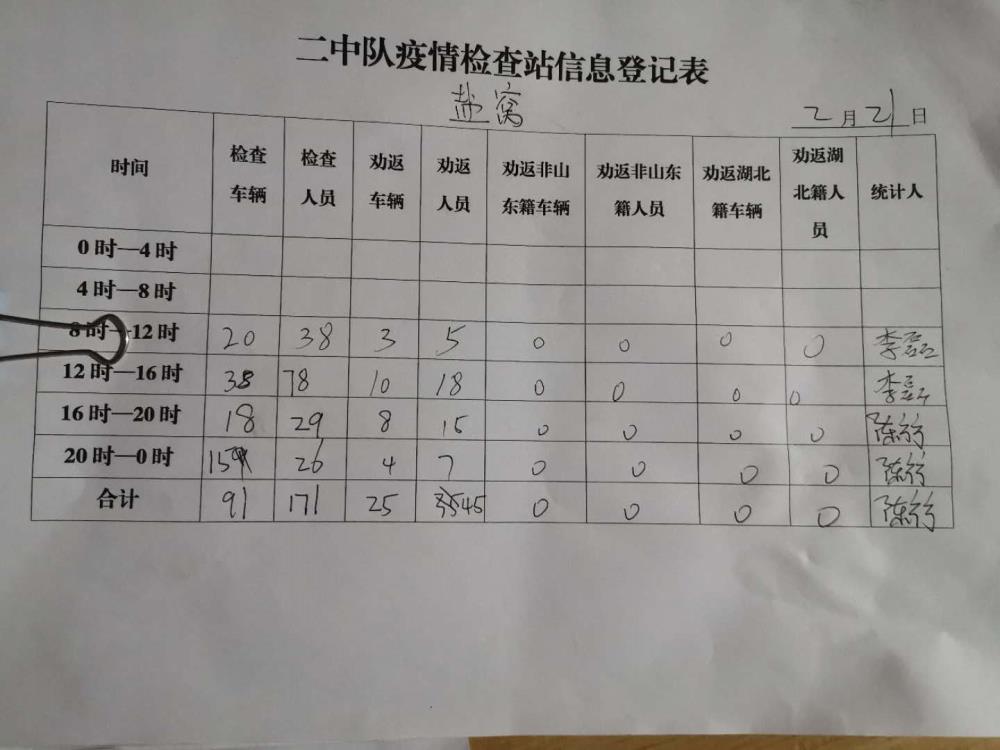 二中队疫情检查站信息登记表
盐窝
2月21日
时间 检查车辆 检查人员 劝返车辆 劝返人员 劝返非山东籍车辆 劝返非山东籍人员 劝返湖北籍车辆 劝返湖北籍人员 统计人
0时—4时
4时—8时
8时—12时 20 38 3 5 0 0 0 0 李磊
12时—16时 38 78 10 18 0 0 0 0 李磊
16时—20时 18 29 8 15 0 0 0 0
20时—0时 15 26 4 7 0 0 0 0
合计 91 171 25 45 0 0 0 0